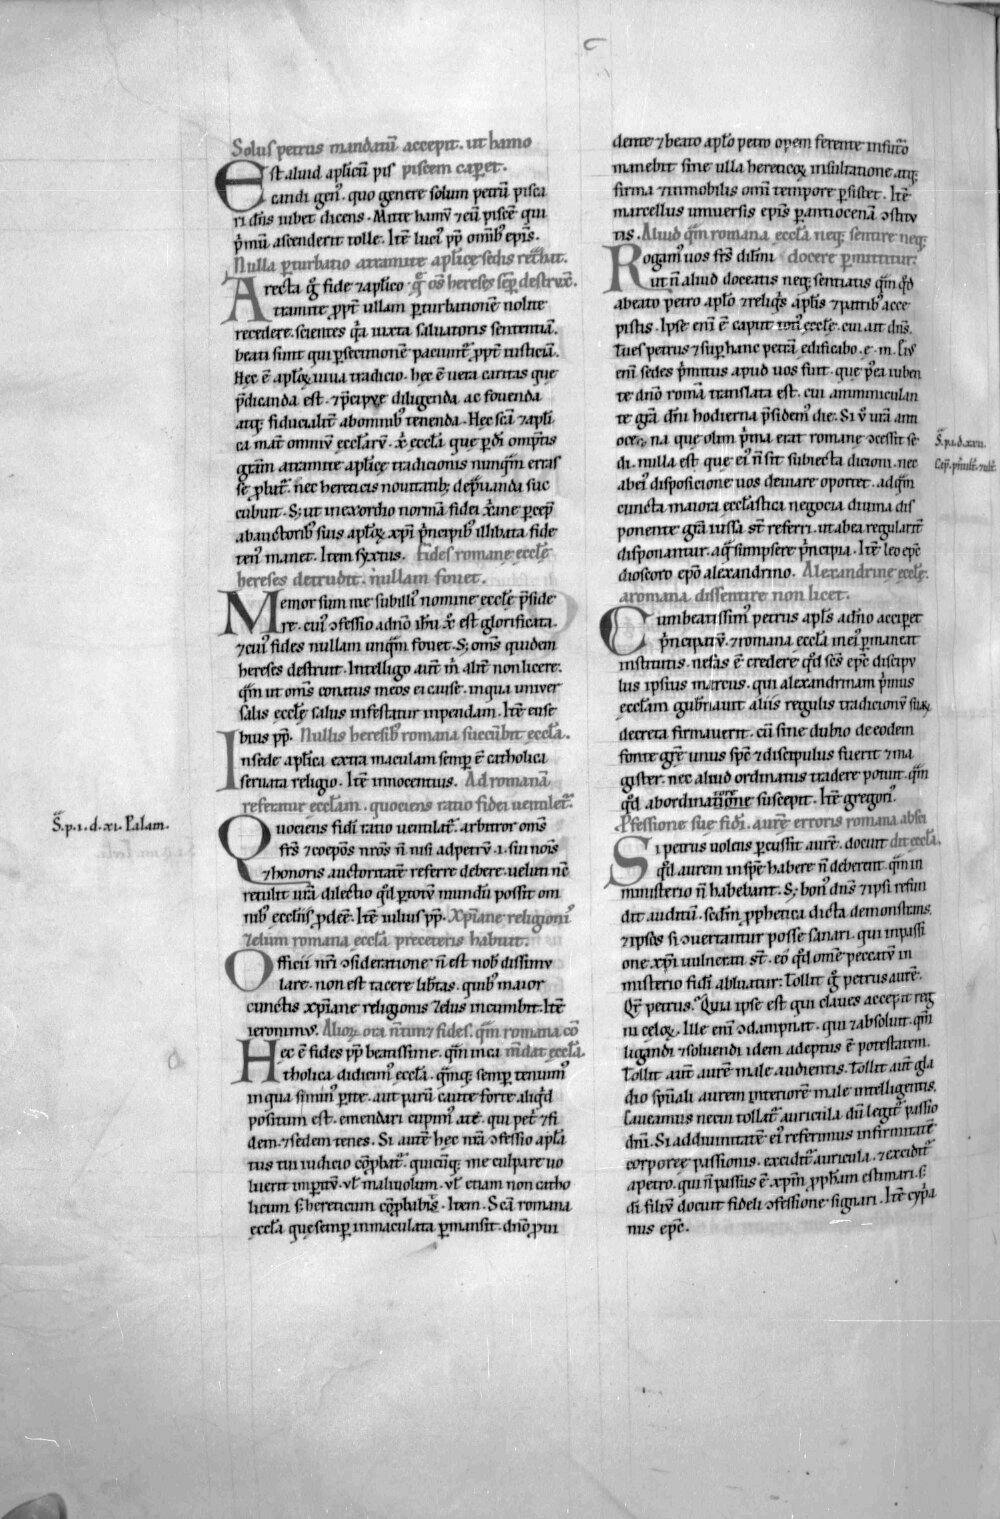 Solus petrus mandatū accepit. ut hamo
Est aliud aplicū pis piscem caperet.
candi gen⁹. quo genere solum petrū pisca
ri dn̄s iubet dicens. Mitte hamū ⁊ eū piscē qui
p̄mū ascenderit tolle. Itē luci⁹ pp̄ omīb⁹ ep̄is.
Nulla ꝑturbatio a tramite aplicę sedis
A recta g̊ fide ⁊ aplico os hereses semꝑ destrux̄.
tramite ꝓpt̄ ullam ꝑturbationē nolite
recedere. scientes q̇ iuxta saluatoris sententiā.
beati sunt qui ꝑsecutionē paciunt̄ ꝓpt̄ iusticiā.
Hęc ē aploꝝ uiua tradicio. hęc ē uera caritas que
p̄dicanda est. ⁊ p̄cipue diligenda ac fouenda
atq; fiducialit̄ ab omnib⁹ tenenda. Hęc scā ⁊ apli
ca mat̄ omniū eccl̄arū. x̄ eccl̄a que ꝑ di omp̄tis
gr̄am a tramite aplicę tradicionis nunq̄m errasse
se ꝓbat̄. nec hereticis nouitatib; dep̄uanda suc
cubuit. S; ut in exordio normā fidei x̄ine ꝑcep̄
ab auctorib⁹ suis aploꝝ xp̄i p̄ncipib⁹ illibata fide
ten⁹ manet. Item syxtus. Fides romane eccl̄ę
hereses detrudit. nullam fouet.
Memor sum me sub illi⁹ nomine eccl̄ę p̄side
re. cui⁹ ɔfessio a dn̄o ih̄u x̄ est glorificata.
⁊ cui⁹ fides nullam unq̄m fouet. S; om̄s quidem
hereses destruit. Intelligo aut̄ m̄ alit̄ non licere.
q̄m ut om̄s conatus meos ei causę. in qua uniuer
salis eccl̄ę salus infestatur inpendam. Itē euse
bius pp̄. Nullis heresib⁹ romana succūbit eccl̄a.
In sede aplica extra maculam semꝑ ē catholica
seruata religio. Itē innocentius. Ad romanā
referatur eccl̄am. quociens ratio fidei uentilet̄.
Quociens fidi ratio uentilat̄. arbitror om̄s
fr̄s ⁊ coep̄os nr̄os n̄ nisi ad petrū .i. sui nōis
⁊ honoris auctoritatē referre debere. uelut nc̄
retulit ur̄a dilectio q̄d ꝑ totū mundū possit om
nib⁹ eccl̄iis ꝓdee. Itē iulius pp̄. Xp̄iane religioni⁹
zelum romana eccl̄a pre ceteris habuit.
Officii nr̄i ɔsideratione n̄ est nob̄ dissimu
lare. non est tacere lib̄tas. quib⁹ maior
cunctis xp̄iane religionis zelus incumbit. Itē
ieronimus.
Hęc ē fides pp̄ beatissime. q̄m in ca
tholica didicim⁹ eccl̄a. q̄mq; semꝑ tenuim⁹
in qua si min⁹ ꝑite. aut parū caute forte aliq̇d
positum est. emendari cupim⁹ a te. qui pet̄ ⁊ fi
dem. ⁊ sedem tenes. Si autē hęc nr̄a ɔfessio apl̄a
tus tui iudicio cōprobat̄. quicūq; me culpare uo
luerit imꝑitū. ul̄ maliuolum. ul̄ etiam non catho
licum s; hereticum Item. Scā romana
eccl̄a que semꝑ inmaculata ꝑmansit. dn̄o ꝓui
dente ⁊ beato aplo petro opem ferente in futuro
manebit sine ulla hereticoꝝ insultatione. atq;
firma ⁊ inmobilis omī tempore ꝑsistet. Itē
marcellus uniuersis ep̄is ꝑ antiocenā ɔstitu
tis. Aliud q̄m romana eccl̄a neq; sentire neq;
Rogam⁹ uos fr̄s dil̄mi docere permittitur.
ut n̄ aliud doceatis neq; sentiatis q̄m q̄d
a beato petro aplo ⁊ reliq̇s aplis ⁊ patrib⁹ acce
pistis. Ipse eni ē caput toti⁹ eccl̄ę. cui ait dn̄s.
Tu es petrus ⁊ suꝑ hanc petrā edificabo .e. m. Ei⁹
eni sedes p̄mitus apud uos fuit. que p⁹ea iuben
te dn̄o romā translata est. cui amminiculan
te gr̄a di̅ui hodierna p̄sidem⁹ die. Si ū ur̄a ant
ocena que olim p̄ma erat romane ɔcessit se
di. nulla est que ei⁹ n̄ sit subiecta dicioni. nec
ab ei⁹ disposicione uos deuiare oportet. ad q̄m
cuncta maiora eccl̄astica negocia diuina dis
ponente gr̄a iussa st̄ referri. ut ab ea regularit̄
disponantur. a q̄ sumpsere p̄ncipia. Itē leo ep̄c
dioscoro ep̄o alexandrino. Alexandrine eccl̄ę.
a romana dissentire non licet.
Cum beatissim⁹ petrus apl̄s a dn̄o acciperet
p̄ncipatū. ⁊ romana eccl̄a in ei⁹ ꝑmaneat
institutis. nefas ē credere q̄d sc̄s ei⁹ discipu
lus ipsius marcus. qui alexandrinam p̄mus
eccl̄am gub̄nauit aliis regulis tradicionū suaꝝ
decreta firmauerit. cū sine dubio de eodem
fonte gr̄e unus sp̄c ⁊ discipulus fuerit ⁊ ma
gister. nec aliud ordinatus tradere potuit. q̄m
q̄d ab ordinatione suscepit. Itē gregori⁹.
Pfessione sue fidi. aurē erroris romana absci
Si petrus uolens ꝑcussit aurē. docuit dit eccl̄a.
q̄d aurem in spē habere n̄ deberent. q̄m in
ministerio n̄ habebant. S; bon⁹ dn̄s ⁊ ipsi refun
dit auditū. secdm ꝓphetica dicta demonstrans.
⁊ ipsos si ɔuertantur posse sanari. qui in passi
one xp̄i uulnerati st̄. eo q̄d omē peccatū in
misterio fidi abluatur: Tollit g̊ petrus aurē.
Q̄r petrus. Quia ipse est qui claues accepit reg
ni celoꝝ. Ille eni ɔdampnat. qui ⁊ absoluit. q̄m
ligandi ⁊ soluendi idem adeptus ē potestatem.
Tollit aut̄ aurē male audientis. Tollit aut̄ gla
dio sp̄uali aurem interiorē male intelligentis.
Caueamus ne cui tollat̄ auricula. dū legit̄ passio
dn̄i. Si ad diuinitatē ei⁹ referimus infirmitatē
corporee passionis. excidit̄ auricula. ⁊ excidit̄
a petro. qui n̄ passus ē xp̄m ꝓphām estimari. s;
di filiū docuit fideli ɔfessione signari. Itē cyp̄a
nus ep̄c.
S̄. p. i. d. xi. Palam.
S̄. p. i. d. xvii.